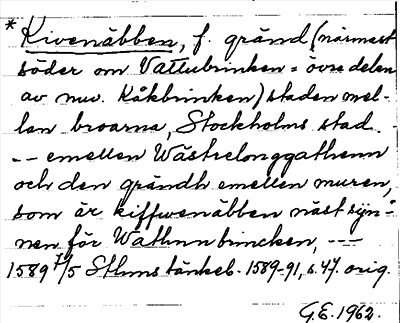 * Kivenäbben, f. gränd (närmast
söder om Vattubrinken = övre delen
av nuv. Kåkbrinken) staden mel-
lan broarna, Stockholms stad.
-- emellen Wästrelonggathenn
och den grändh emellen muren,
som är kiffwenäbben näst synn-
nen för Wathnnbrincken, ---
1589 7/5 Sthms tänkeb. 1589-91, s. 47. orig.
G.E. 1962.